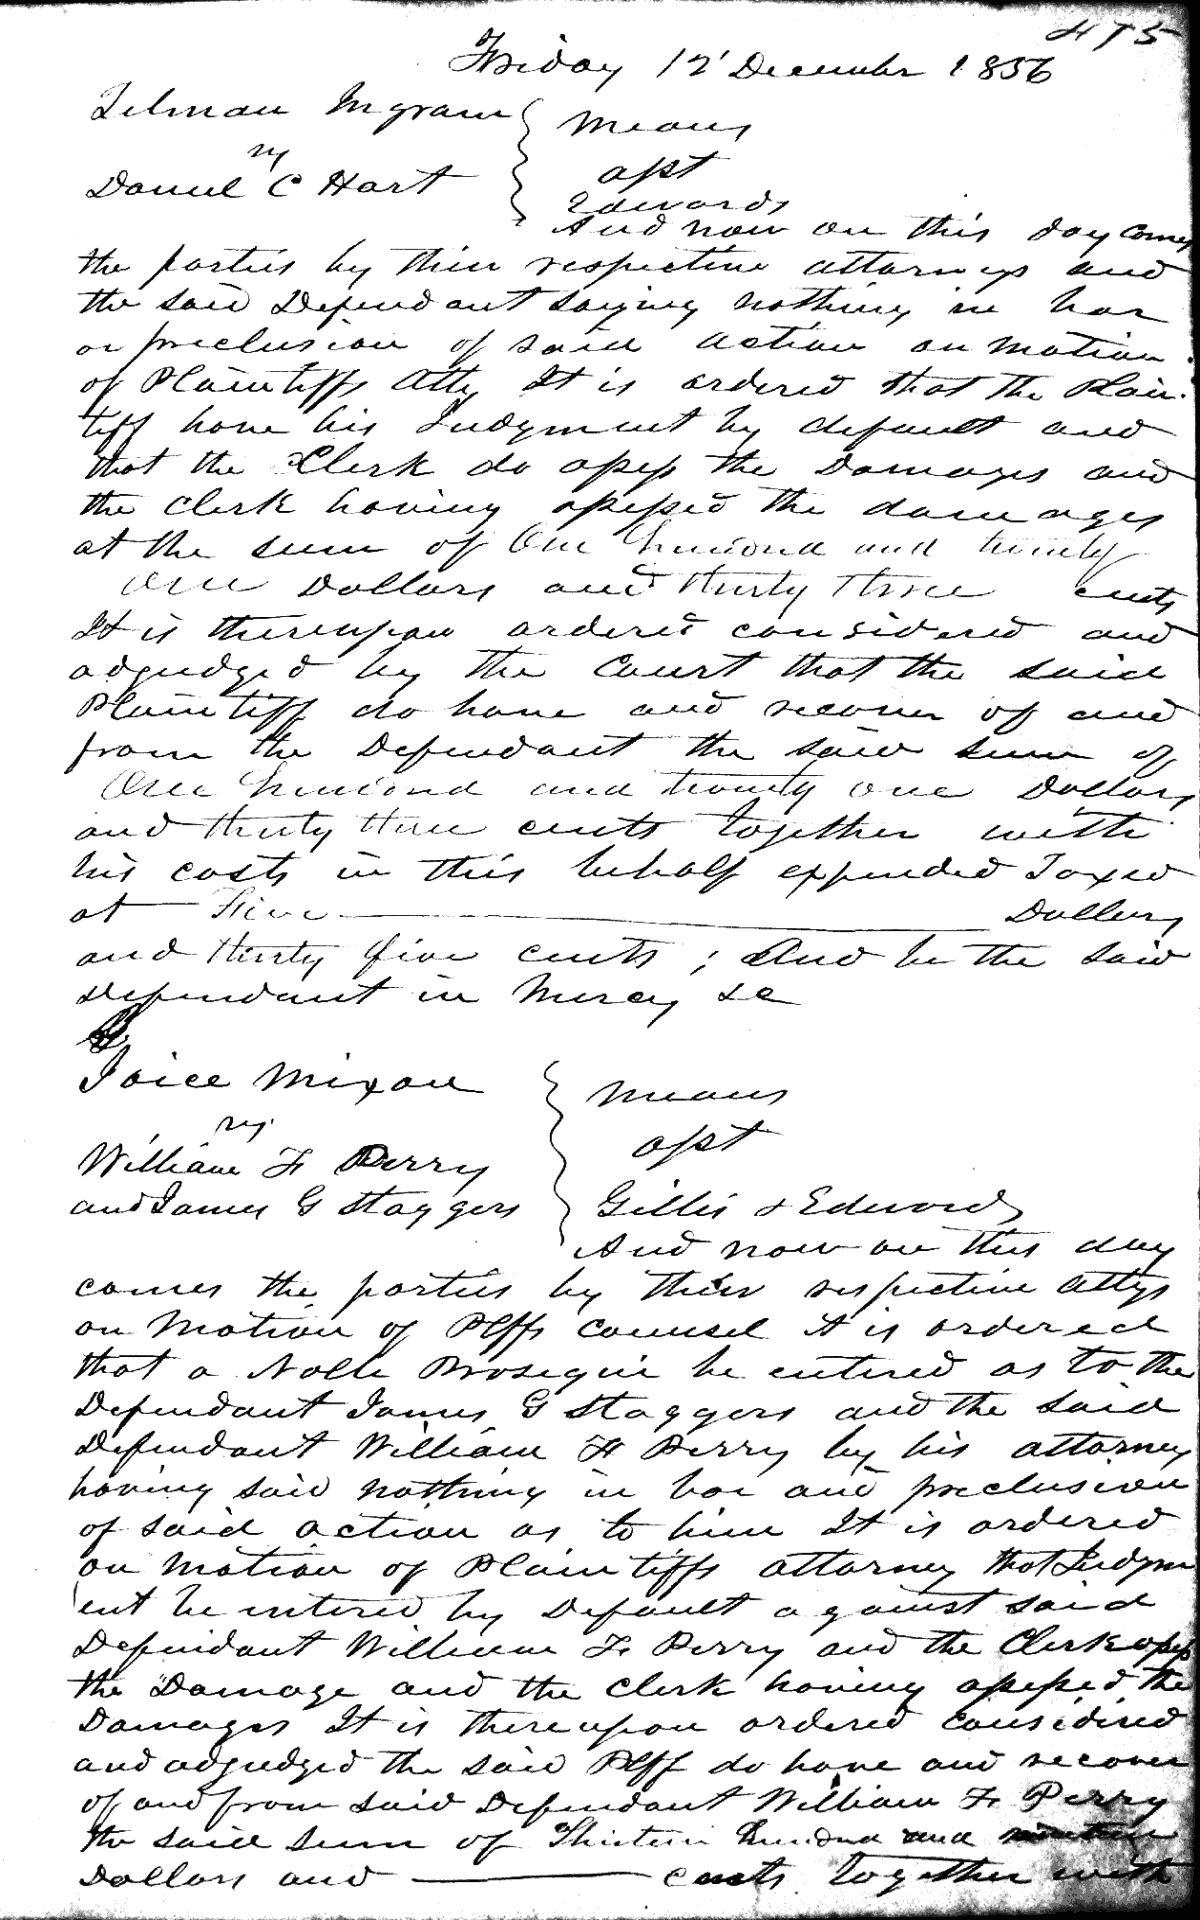 475
Friday 12' December 1856
Tilman Ingram
vs
Daniel C Hart
Means
apt
Edwards
And now on this day comes
the parties by their respective attorneys and
the said Defendant saying nothing in bar
or preclusion of said action on motion
of Plaintiffs Atty It is ordered that the Plain-
tiff have his Judgment by default and
that the Clerk do assess the Damages and
the clerk having assessed the damages
at the sum of One hundred and twenty
one Dollars and thirty three cents
It is thereupon ordered considered and
adjudged by the Court that the said
Plaintiff do have and recover of and
from the Defendant the said sum of
One hundred and twenty one Dollars
and thirty three cents together with
his costs in this behalf expended Taxed
at Five Dollars
and thirty five cents ; And be the said
Defendant in Mercy &c
Joice Mixon
vs
William F Perry
and James G Staggers
Means
apt
Gillis & Edwards
And now on this day
comes the parties by their respective attys
on Motion of Plffs counsel it is ordered
that a Nolle Prosequi be entered as to the
Defendant James G Staggers and the said
Defendant William F Perry by his attorney
having said nothing in bar and preclusion
of said action as to him It is ordered
on motion of Plaintiffs attorney that Judgm
ent be entered by Default against said
Defendant William F Perry and the Clerk assess
the Damage and the clerk having assessed the
Damages It is thereupon ordered considered
and adjudged the said Plff do have and recover
of and from said Defendant William F Perry
the said sum of Thirteen hundred and
Dollars and cents together with